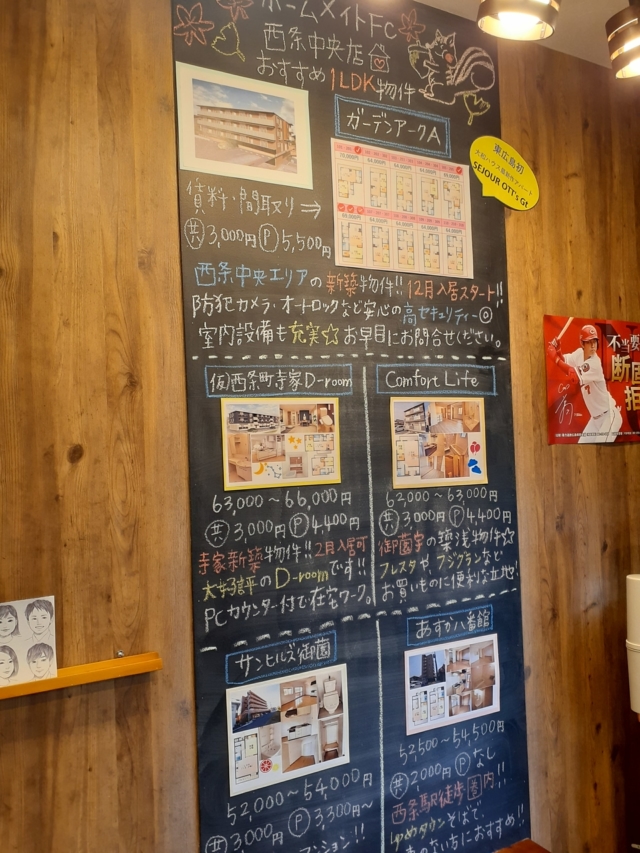 ホームメイトFC
西条中央店
おすすめ1LDK物件
ガーデンアークA
東広島初
SEJOUR OTT's Gt
賃料・間取り⇒
共 3,000円 P 5,500円
西条中央エリアの新築物件!! 12月入居スタート!!
防犯カメラ・オートロックなど安心の高セキュリティー◎
室内設備も充実☆お早目にお問合せください。
(仮)西条町寺家D-room
63,000～66,000円
共 3,000円 P 4,400円
寺家新築物件!! 2月入居可
大好評のD-roomです!!
PCカウンター付で在宅ワーク。
Comfort Life
62,000～63,000円
共 3,000円 P 4,400円
御薗宇の築浅物件☆
フレスタや、フジグランなど
お買いものに便利な立地!
サンヒルズ御薗
52,000～54,000円
共 3,000円 P 3,300円～
マンション!!
あすか八番館
52,500～54,500円
共 2,000円 P なし
西条駅徒歩圏内!!
ゆめタウンそばで
のない方におすすめ!!
不当要
断固
拒